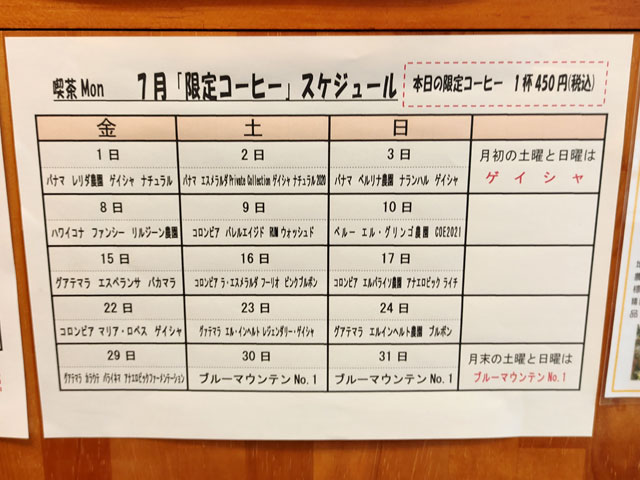 喫茶Mon 7月「限定コーヒー」スケジュール
本日の限定コーヒー 1杯450円(税込)
金 土 日
1日 2日 3日 月初の土曜と日曜は
パナマ レリダ農園 ゲイシャ ナチュラル パナマ エスメラルダ Private Collection ゲイシャ ナチュラル2020 パナマ ベルリナ農園 ナランハル ゲイシャ ゲイシャ
8日 9日 10日
ハワイコナ ファンシー リルジーン農園 コロンビア バレルエイジド RUM ウォッシュド ペルー エル・グリンゴ農園 COE2021
15日 16日 17日
グアテマラ エスペランサ パカマラ コロンビア ラ・エスメラルダ フーリオ ピンクブルボン コロンビア エルパライソ農園 アナエロビック ライチ
22日 23日 24日
コロンビア マリア・ロペス ゲイシャ グァテマラ エル・インヘルト レジェンダリー・ゲイシャ グアテマラ エルインヘルト農園 ブルボン
29日 30日 31日 月末の土曜と日曜は
グァテマラ アナエロビックファーメンテーション ブルーマウンテンNo.1 ブルーマウンテンNo.1 ブルーマウンテンNo.1